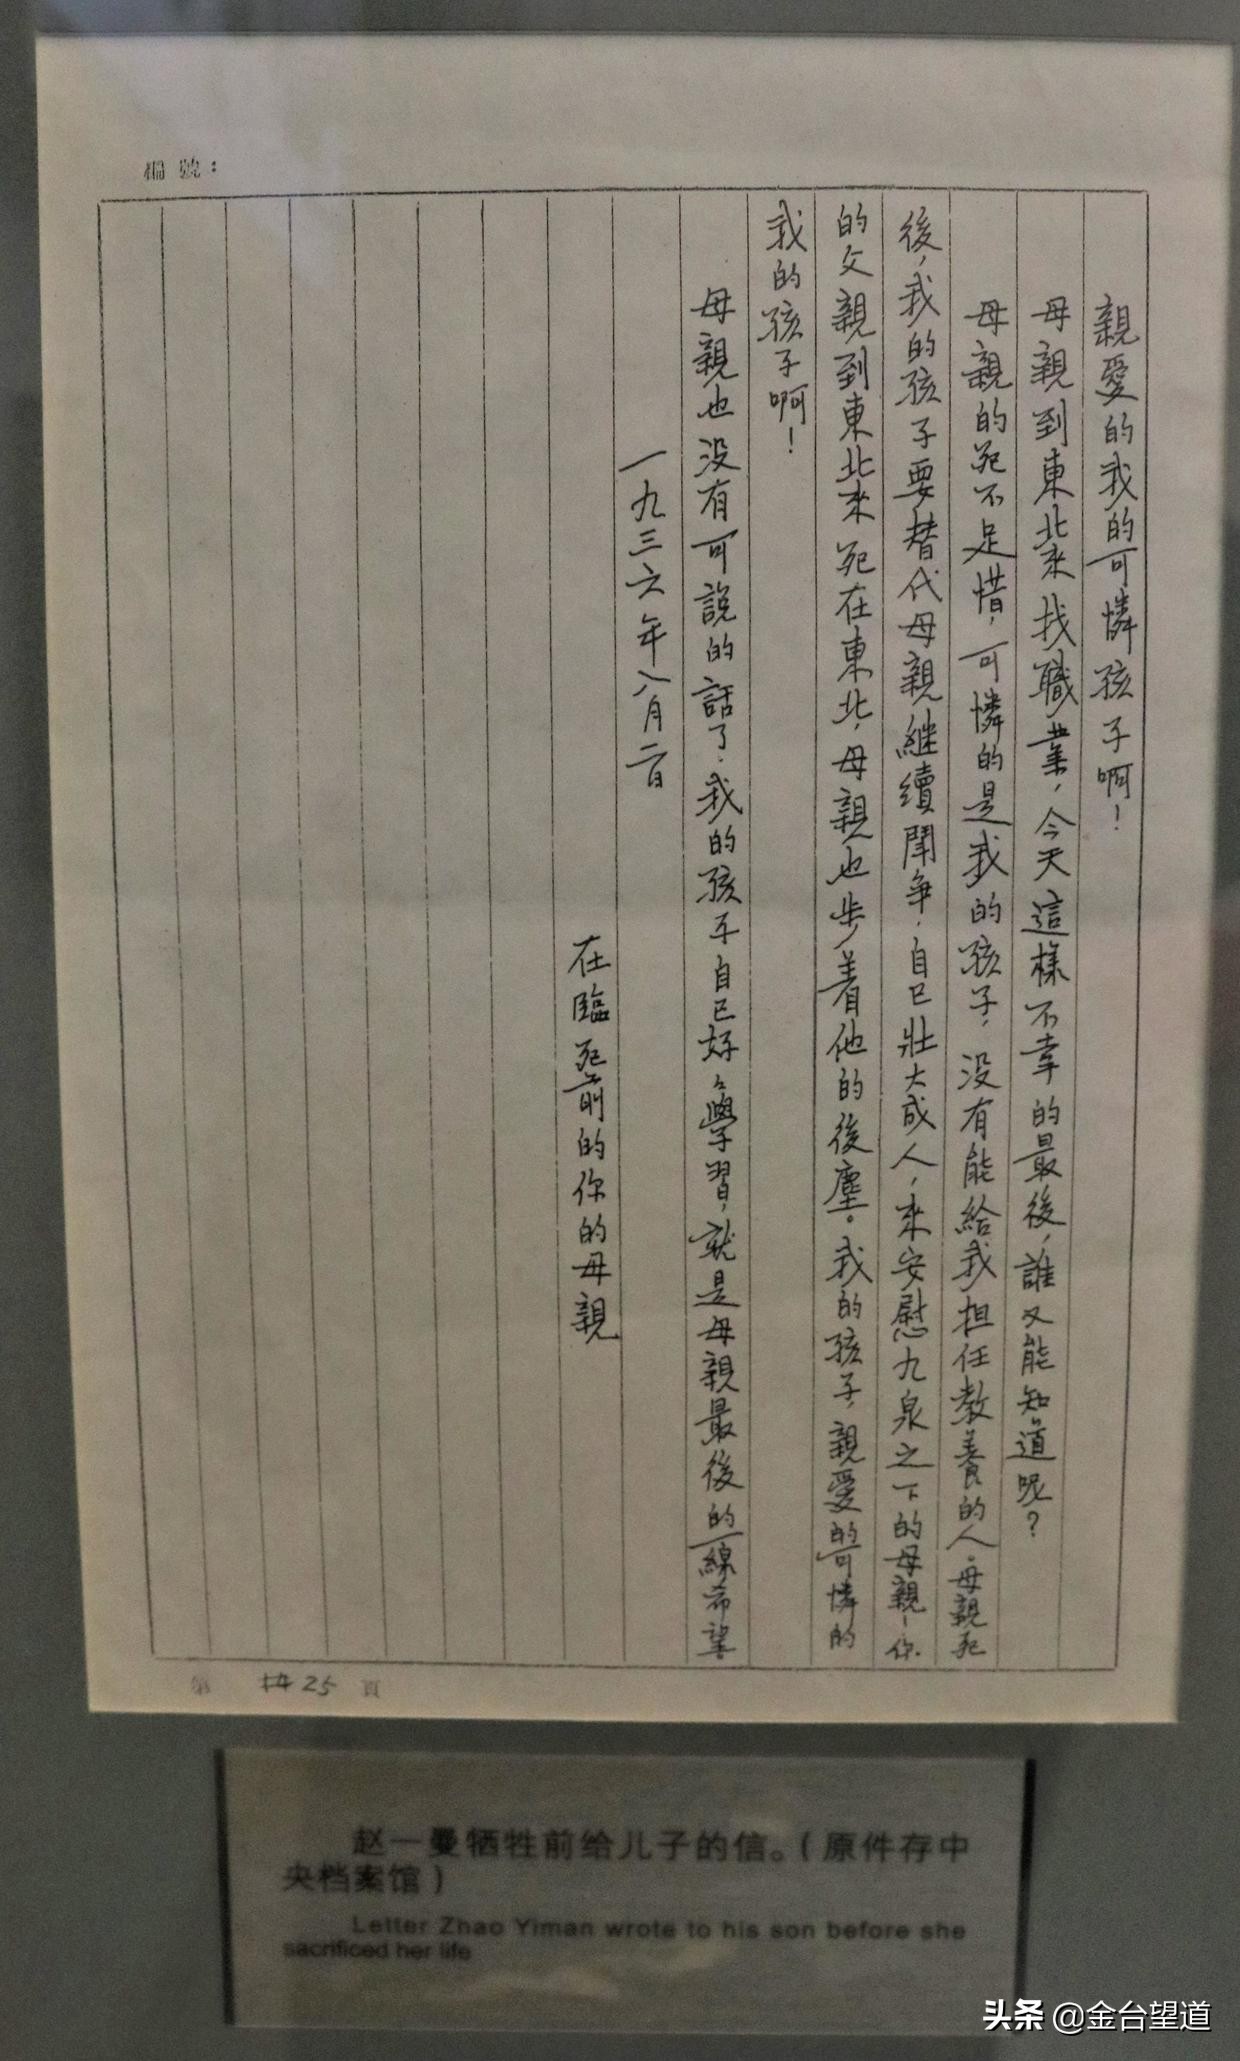 編號：
親愛的我的可憐孩子啊！
母親到東北來找職業，今天這樣不幸的最後，誰又能知道呢？
母親的死不足惜，可憐的是我的孩子，没有能給我担任教養的人。母親死
後，我的孩子要替代母親継續鬥争，自己壯大成人，來安慰九泉之下的母親！你
的父親到東北來死在東北，母親也步着他的後塵。我的孩子，親愛的可憐的
我的孩子啊！
母親也没有可說的話了，我的孩子自己好々學習，就是母親最後的一線希望
一九三六年八月二日
在臨死前的你的母親
第 共25 頁
赵一曼牺牲前给儿子的信。（原件存中
央档案馆）
Letter Zhao Yiman wrote to his son before she
sacrificed her life
头条 @金台望道